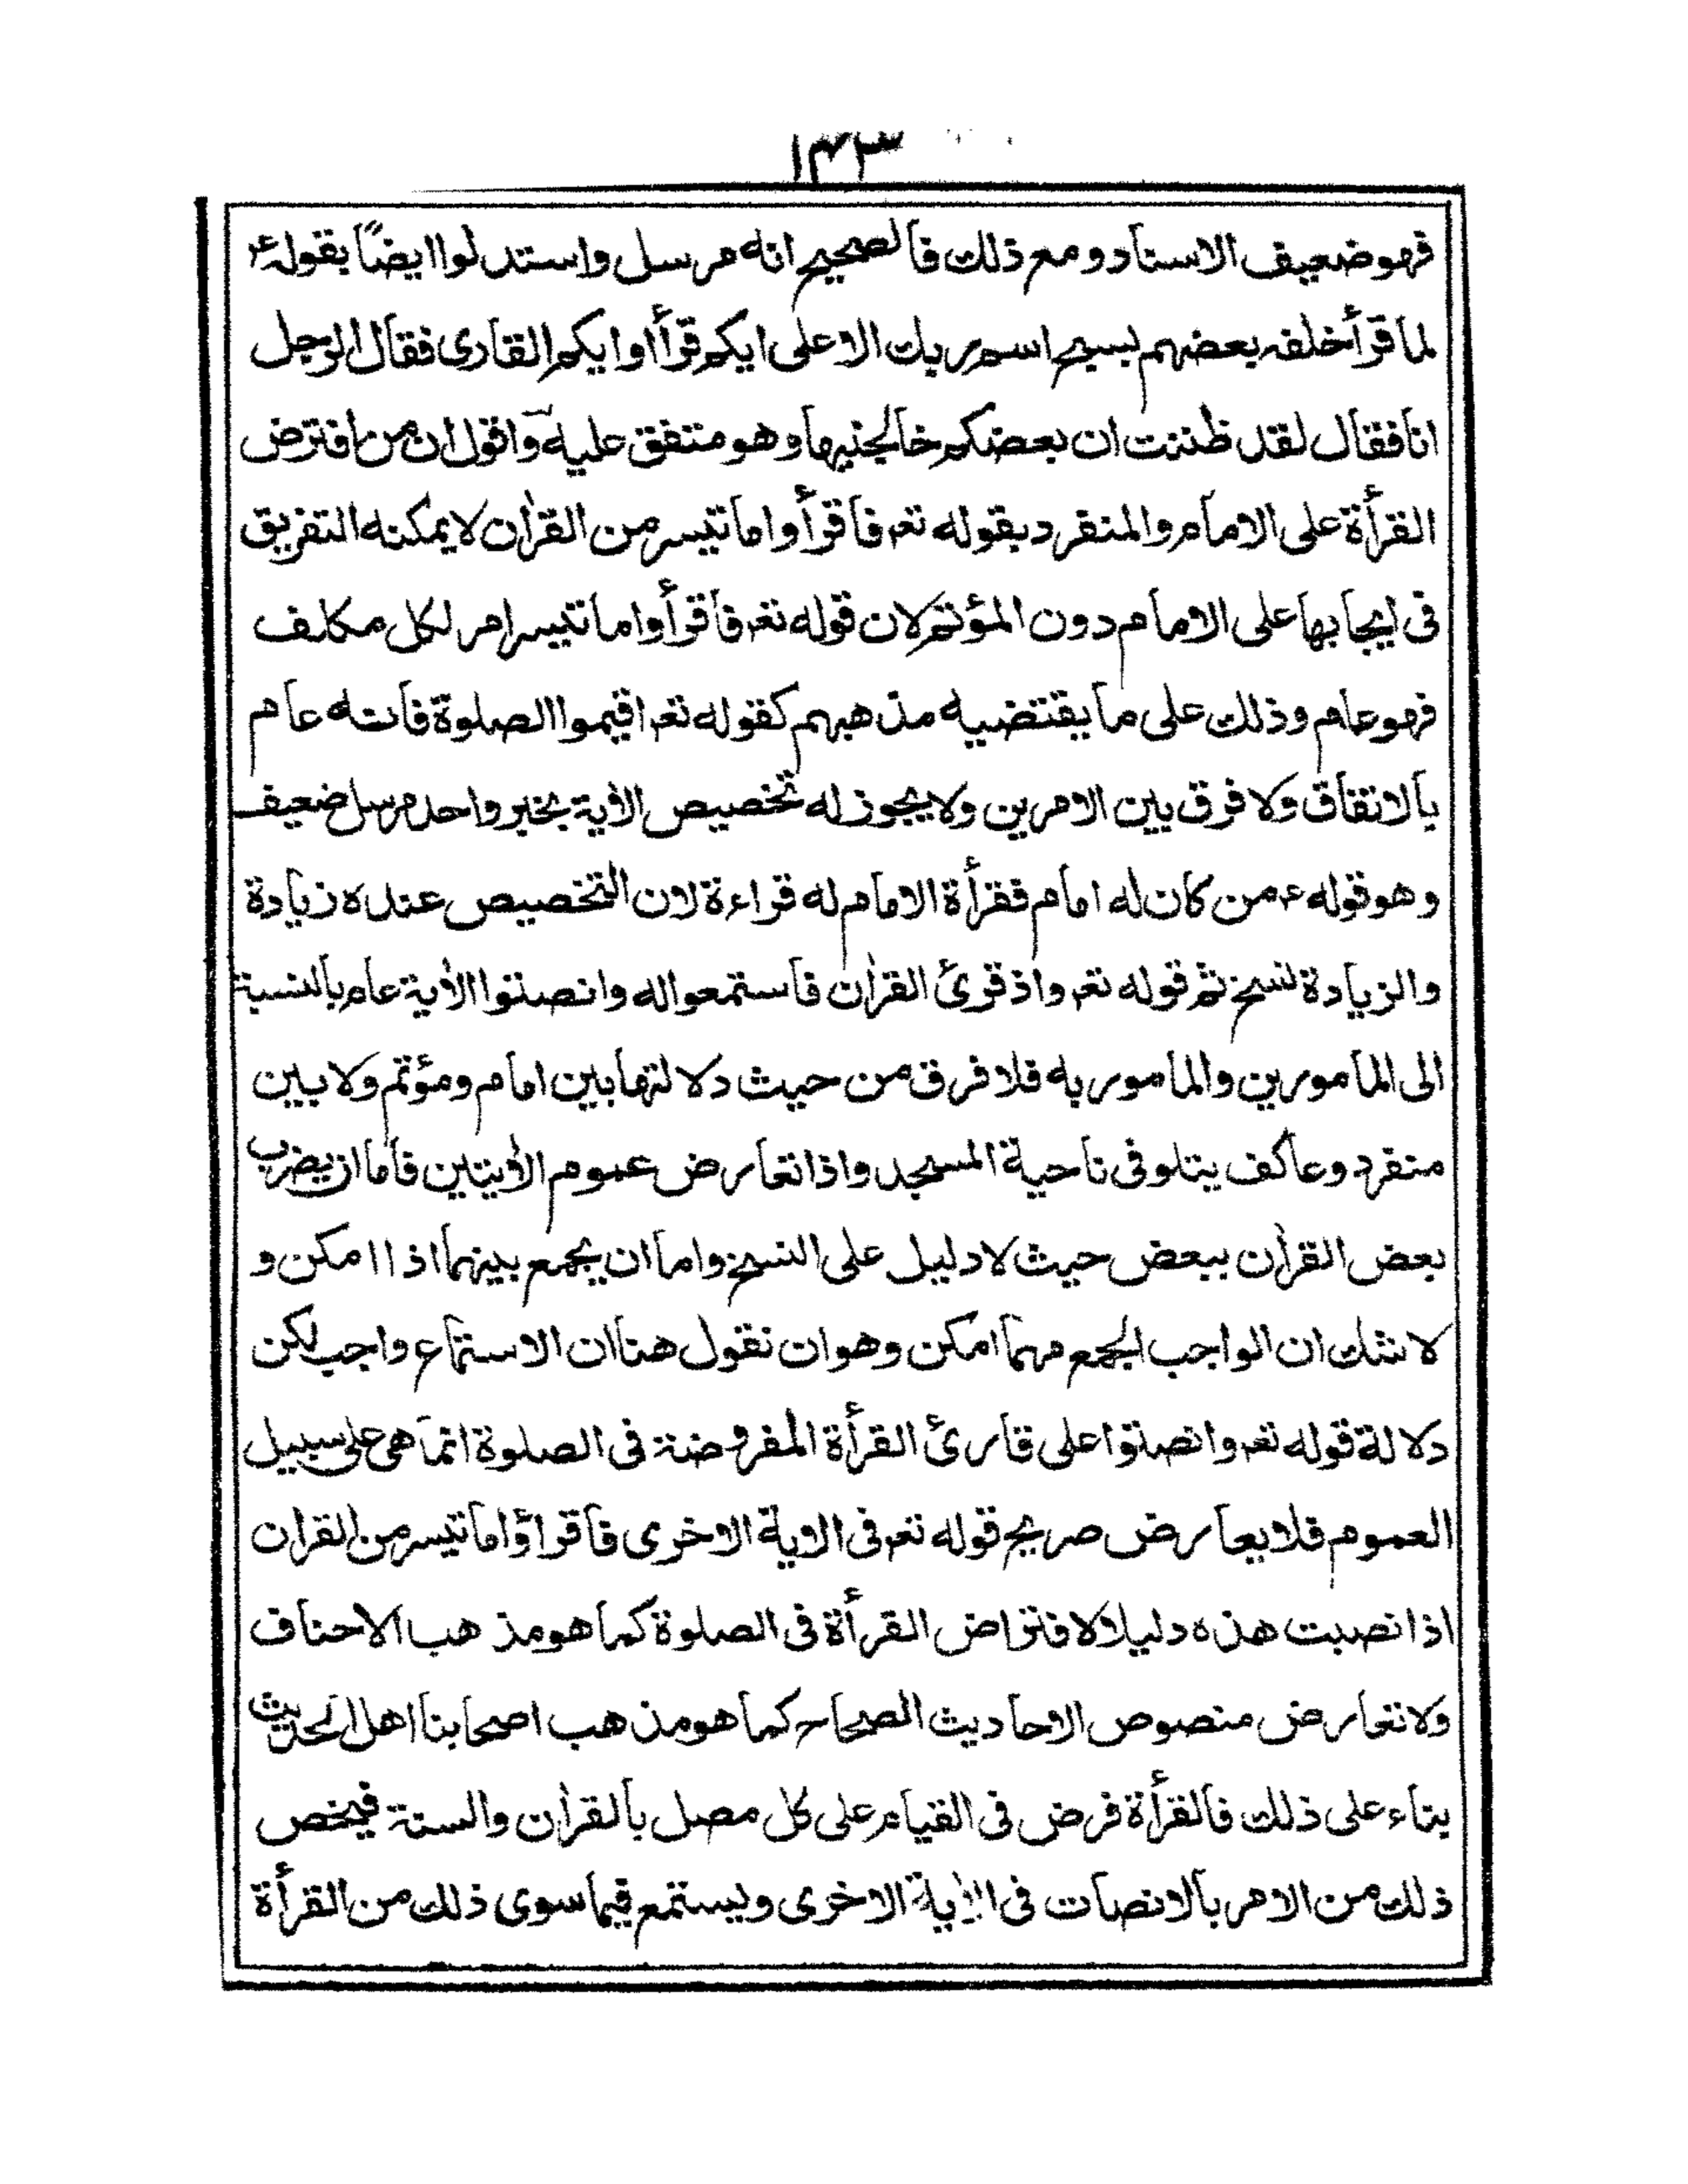 ١٤٣
فهو ضعيف الاسناد ومع ذلك فالصحيح انه مرسل واستدلوا ايضًا بقوله ع
لما قرأ خلفه بعضهم بسبح اسم ربك الاعلى ايكم قرأ او ايكم القارى فقال الرجل
انا فقال لقد ظننت ان بعضكم خالجنيها وهو متفق عليه واقول ان من افترض
القرأة على الامام والمنفرد بقوله تعـ فاقرأوا ما تيسر من القرأن لا يمكنه التفريق
فى ايجابها على الامام دون المؤتم لان قوله تعـ فاقرأوا ما تيسر امر لكل مكلف
فهو عام وذلك على ما يقتضيه مذهبهم كقوله تعـ اقيموا الصلوة فانه عام
بالاتفاق ولا فرق بين الامرين ولا يجوز له تخصيص الأية بخبر واحد مرسل ضعيف
وهو قوله ع من كان له امام فقرأة الامام له قراءة لان التخصيص عنده زيادة
والزيادة نسخ ثم قوله تعـ واذ قرئ القرأن فاستمعوا له وانصتوا الأية عام بالنسبة
الى المأمورين والمامور به فلا فرق من حيث دلالتها بين امام ومؤتم ولا بين
منفرد وعاكف يتلو فى ناحية المسجد واذا تعارض عموم الأيتين فاما ان يضرب
بعض القرأن ببعض حيث لا دليل على النسخ واما ان يجمع بينهما اذا امكن و
لا شك ان الواجب الجمع مهما امكن وهو ان نقول هنا ان الاستماع واجب لكن
دلالة قوله تعـ وانصتوا على قارئ القرأة المفروضة فى الصلوة انما هى على سبيل
العموم فلا يعارض صريح قوله تعـ فى الاية الاخرى فاقرأوا ما تيسر من القران
اذا نصبت هذه دليلا لافتراض القرأة فى الصلوة كما هو مذهب الاحناف
ولا تعارض منصوص الاحاديث الصحاح كما هو مذهب اصحابنا اهل الحديث
بناء على ذلك فالقرأة فرض فى القيام على كل مصل بالقرأن والسنة فيخص
ذلك من الامر بالانصات فى الأية الاخرى ويستمع فيما سوى ذلك من القرأة